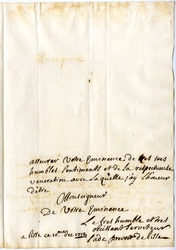 assurer Votre Eminence de mes tres
humbles sentiments et de la respectueuse
veneration avec laquelle j'ay l'honeur
d'estre
Monseigneur
De Votre Eminence
Le tres humble et tres
obeissant serviteur
a lille ce